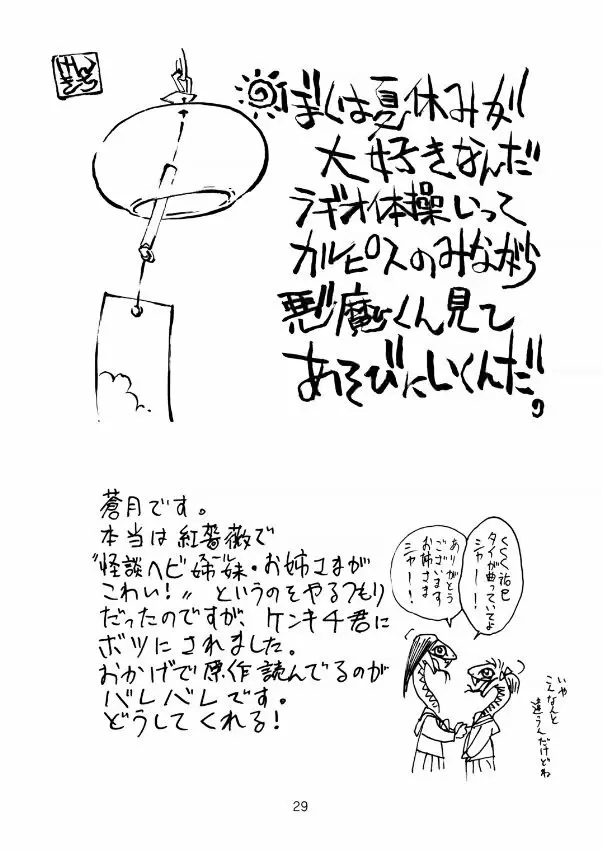 ぼくは夏休みが
大好きなんだ
ラヂオ体操いって
カルピスのみながら
悪魔くん見て
あそびにいくんだ。
蒼月です。
本当は紅薔薇で
"怪談ヘビ姉妹・お姉さまが
こわい!〟というのをやるつもり
だったのですが、ケンキチ君に
ボツにされました。
おかげで原作読んでるのが
バレバレです。
どうしてくれる!
くくく祐巳
タイが曲っていてよ
シャー!!
ありがとう
ございます
お姉さま
シャー!!
いや
こんなんと
違うんだけどね
29